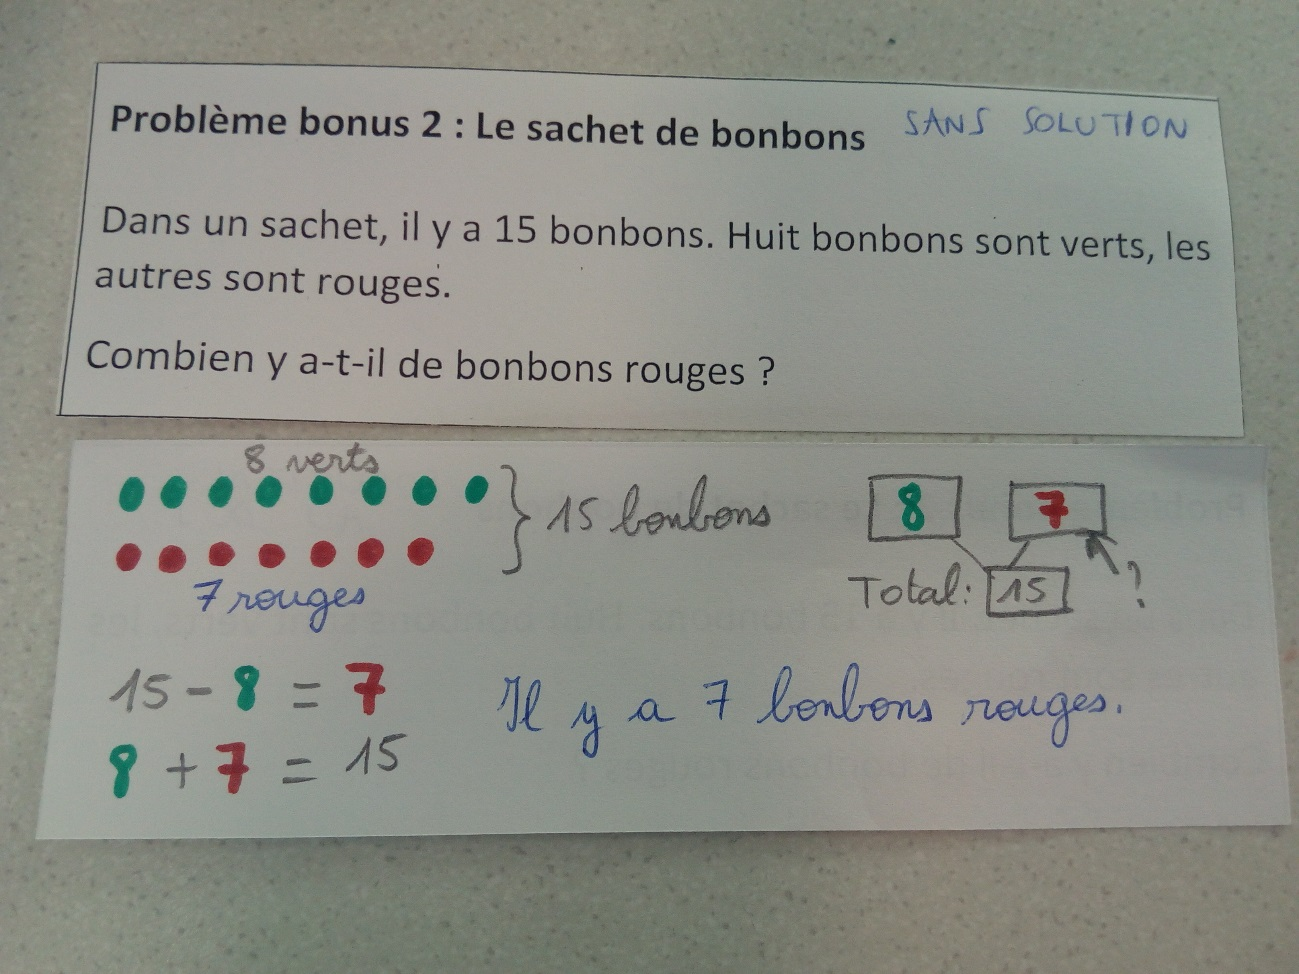 Problème bonus 2 : Le sachet de bonbons SANS SOLUTION
Dans un sachet, il y a 15 bonbons. Huit bonbons sont verts, les
autres sont rouges.
Combien y a-t-il de bonbons rouges ?
8 verts
15 bonbons
7 rouges
8 7
Total: 15 ?
15 - 8 = 7
8 + 7 = 15
Il y a 7 bonbons rouges.